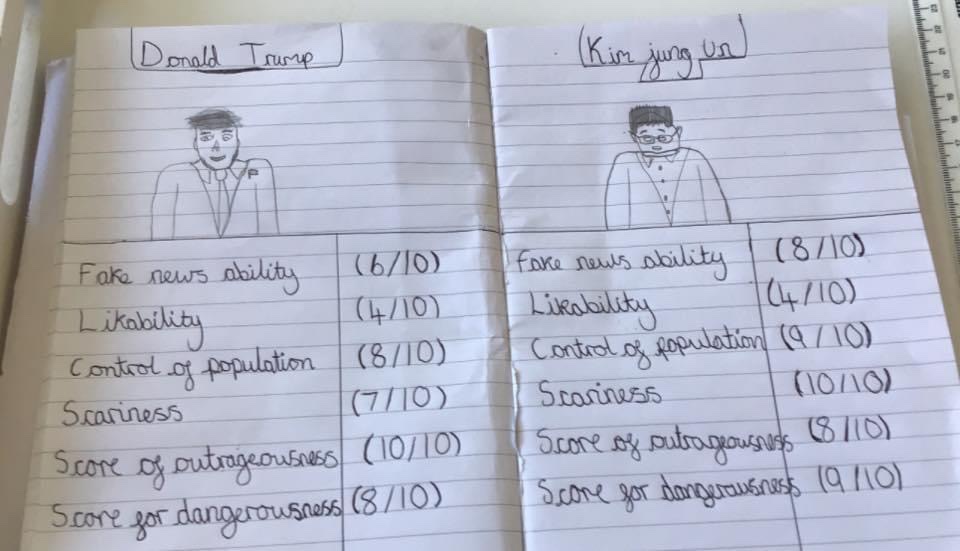 Donald Trump
Fake news ability (6/10)
Likability (4/10)
Control of population (8/10)
Scariness (7/10)
Score of outrageousness (10/10)
Score for dangerousness (8/10)
Kim jung Un
Fake news ability (8/10)
Likability (4/10)
Control of population (9/10)
Scariness (10/10)
Score of outrageousness (8/10)
Score for dangerousness (9/10)